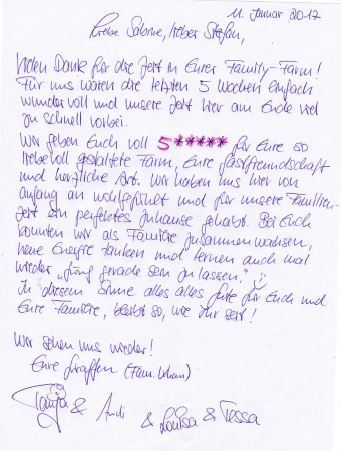 11. Januar 2017
Liebe Sabine, lieber Stefan,
Vielen Dank für die Zeit in Eurer Family-Farm!
Für uns waren die letzten 5 Wochen einfach
wundervoll und unsere Zeit hier am Ende viel
zu schnell vorbei.
Wir geben Euch voll 5***** für Eure so
liebevoll gestaltete Farm, Eure Gastfreundschaft
und herzliche Art. Wir haben uns hier von
Anfang an wohlgefühlt und für unsere Familien-
zeit ein perfektes Zuhause gehabt. Bei Euch
konnten wir als Familie zusammenwachsen,
neue Energie tanken und lernen auch mal
wieder „fünf gerade sein zu lassen."
In diesem Sinne alles alles Gute für Euch und
Eure Familie, bleibt so, wie Ihr seid!
Wir sehen uns wieder!
Eure Giraffen (Fam.
Tanja & Andi & Louisa & Tessa